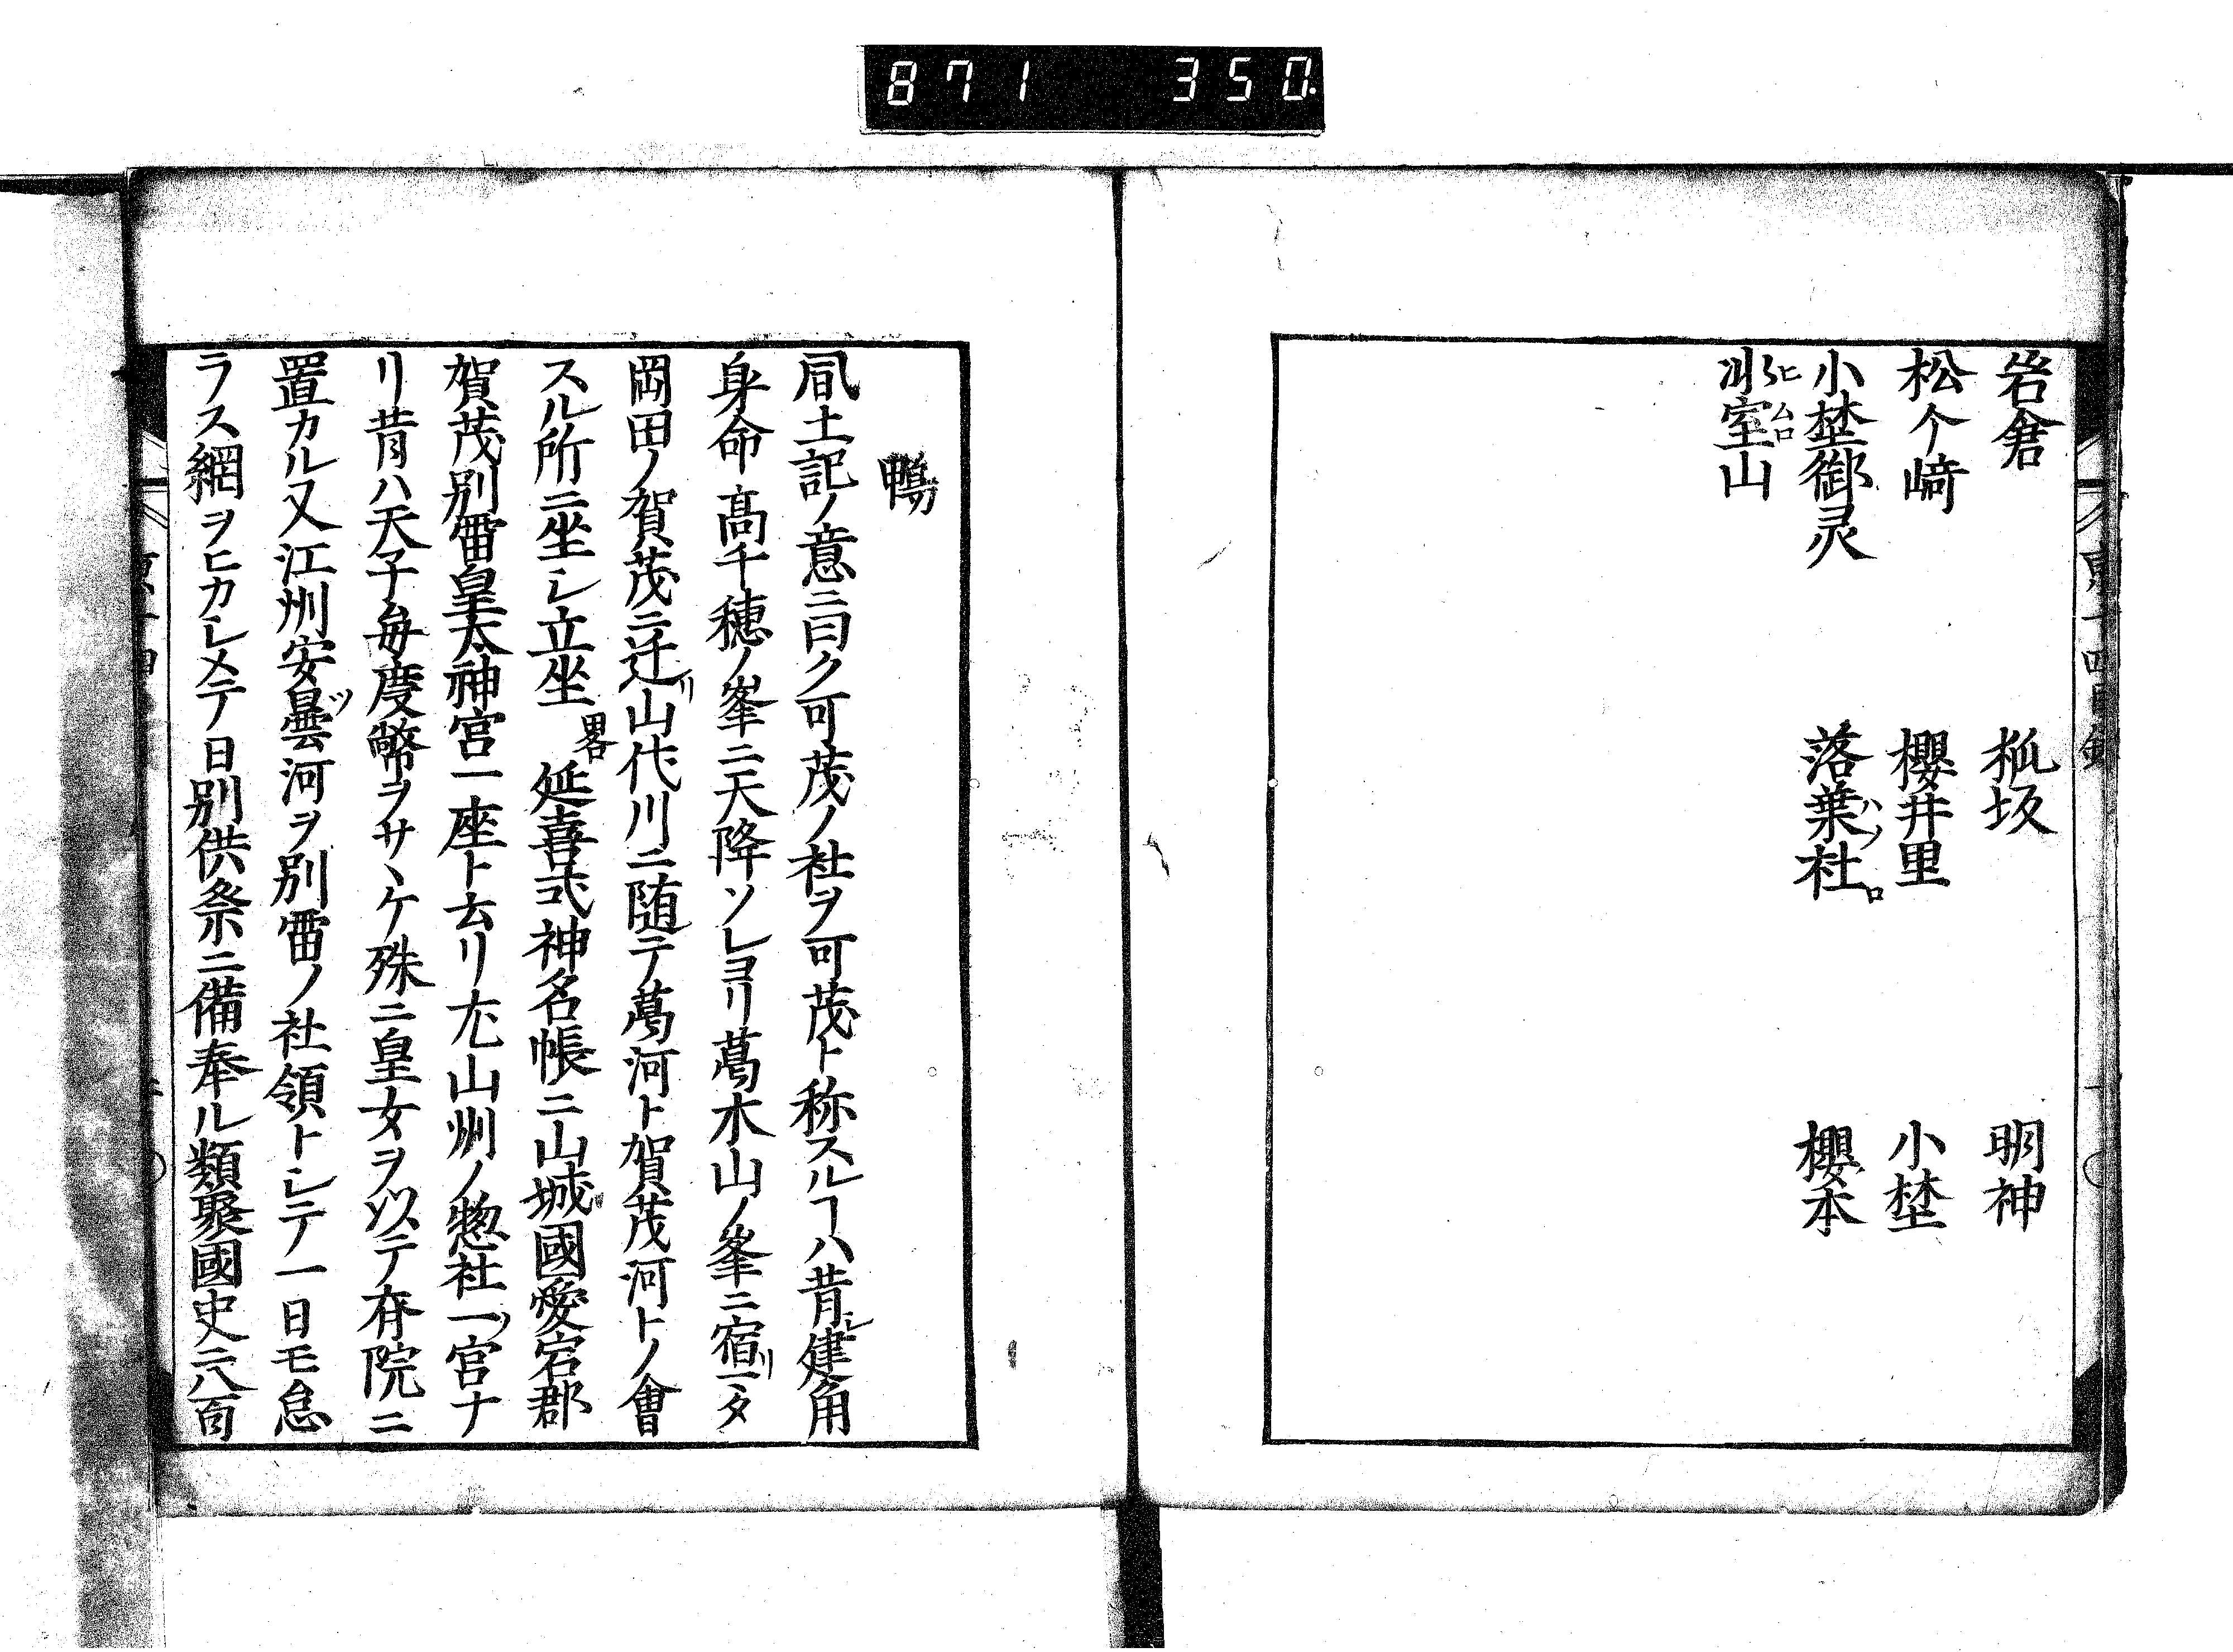 871 350
岩倉 狐坂 明神
松ケ﨑 櫻井里 小埜
小埜御灵 落葉社 櫻本
氷室山
鴨
風土記ノ意ニ曰ク可茂ノ社ヲ可茂ト称スルヿハ昔建角
身命髙千穂ノ峯ニ天降ソレヨリ葛木山ノ峯ニ宿リマタ
岡田ノ賀茂ニ迁リ山代川ニ随テ葛河ト賀茂河トノ會
スル所ニ坐シ立坐畧延喜式神名帳ニ山城國愛宕郡
賀茂別雷皇太神宮一座ト云リ尤山州ノ惣社一ノ宮ナ
リ昔ハ天子毎度幣ヲサヽケ殊ニ皇女ヲ以テ斎院ニ
置カル又江州安曇河ヲ別雷ノ社領トシテ一日モ怠
ラス網ヲヒカシメテ日別供祭ニ備奉ル類聚國史ニ八百